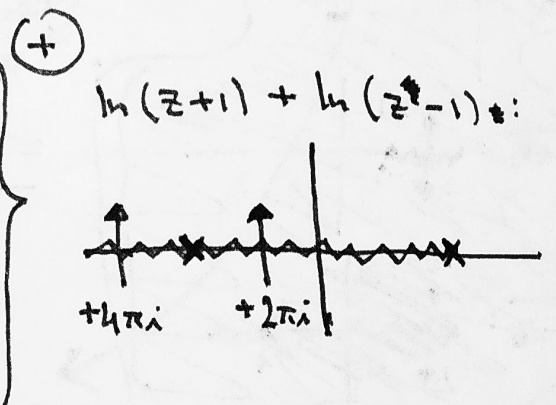 +
ln (z+1) + ln (z-1):
+4πi +2πi